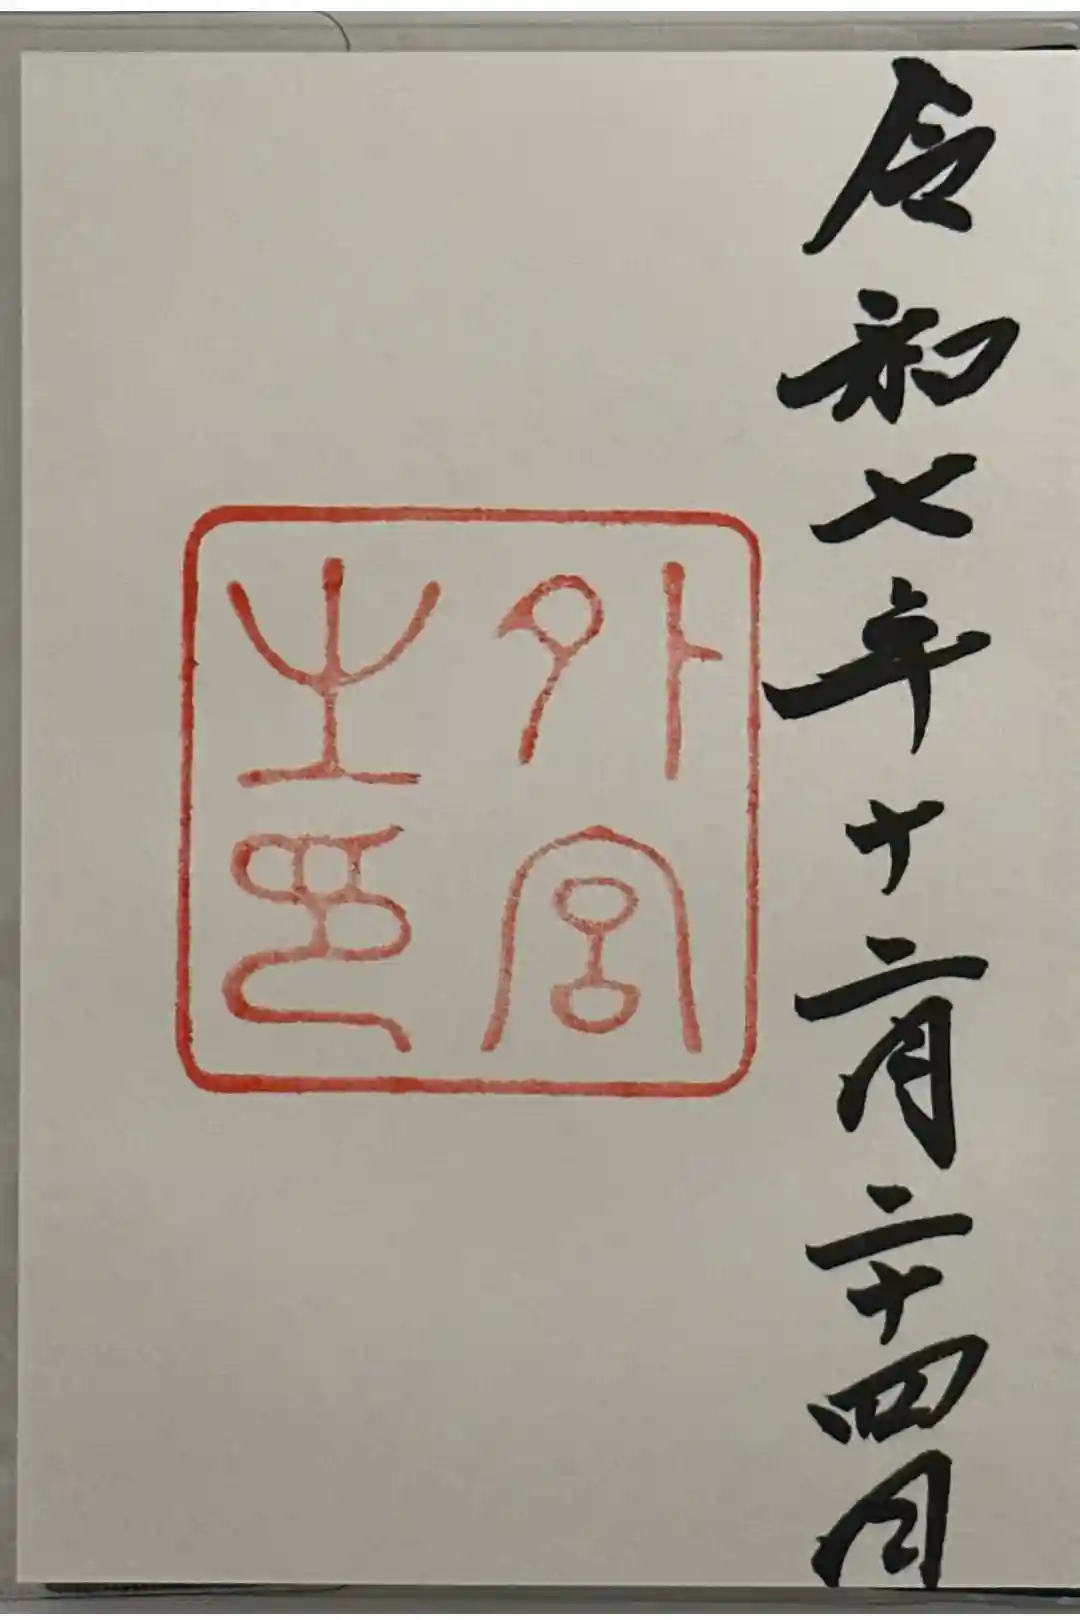 令和七年十二月二十四日
外宮
之印